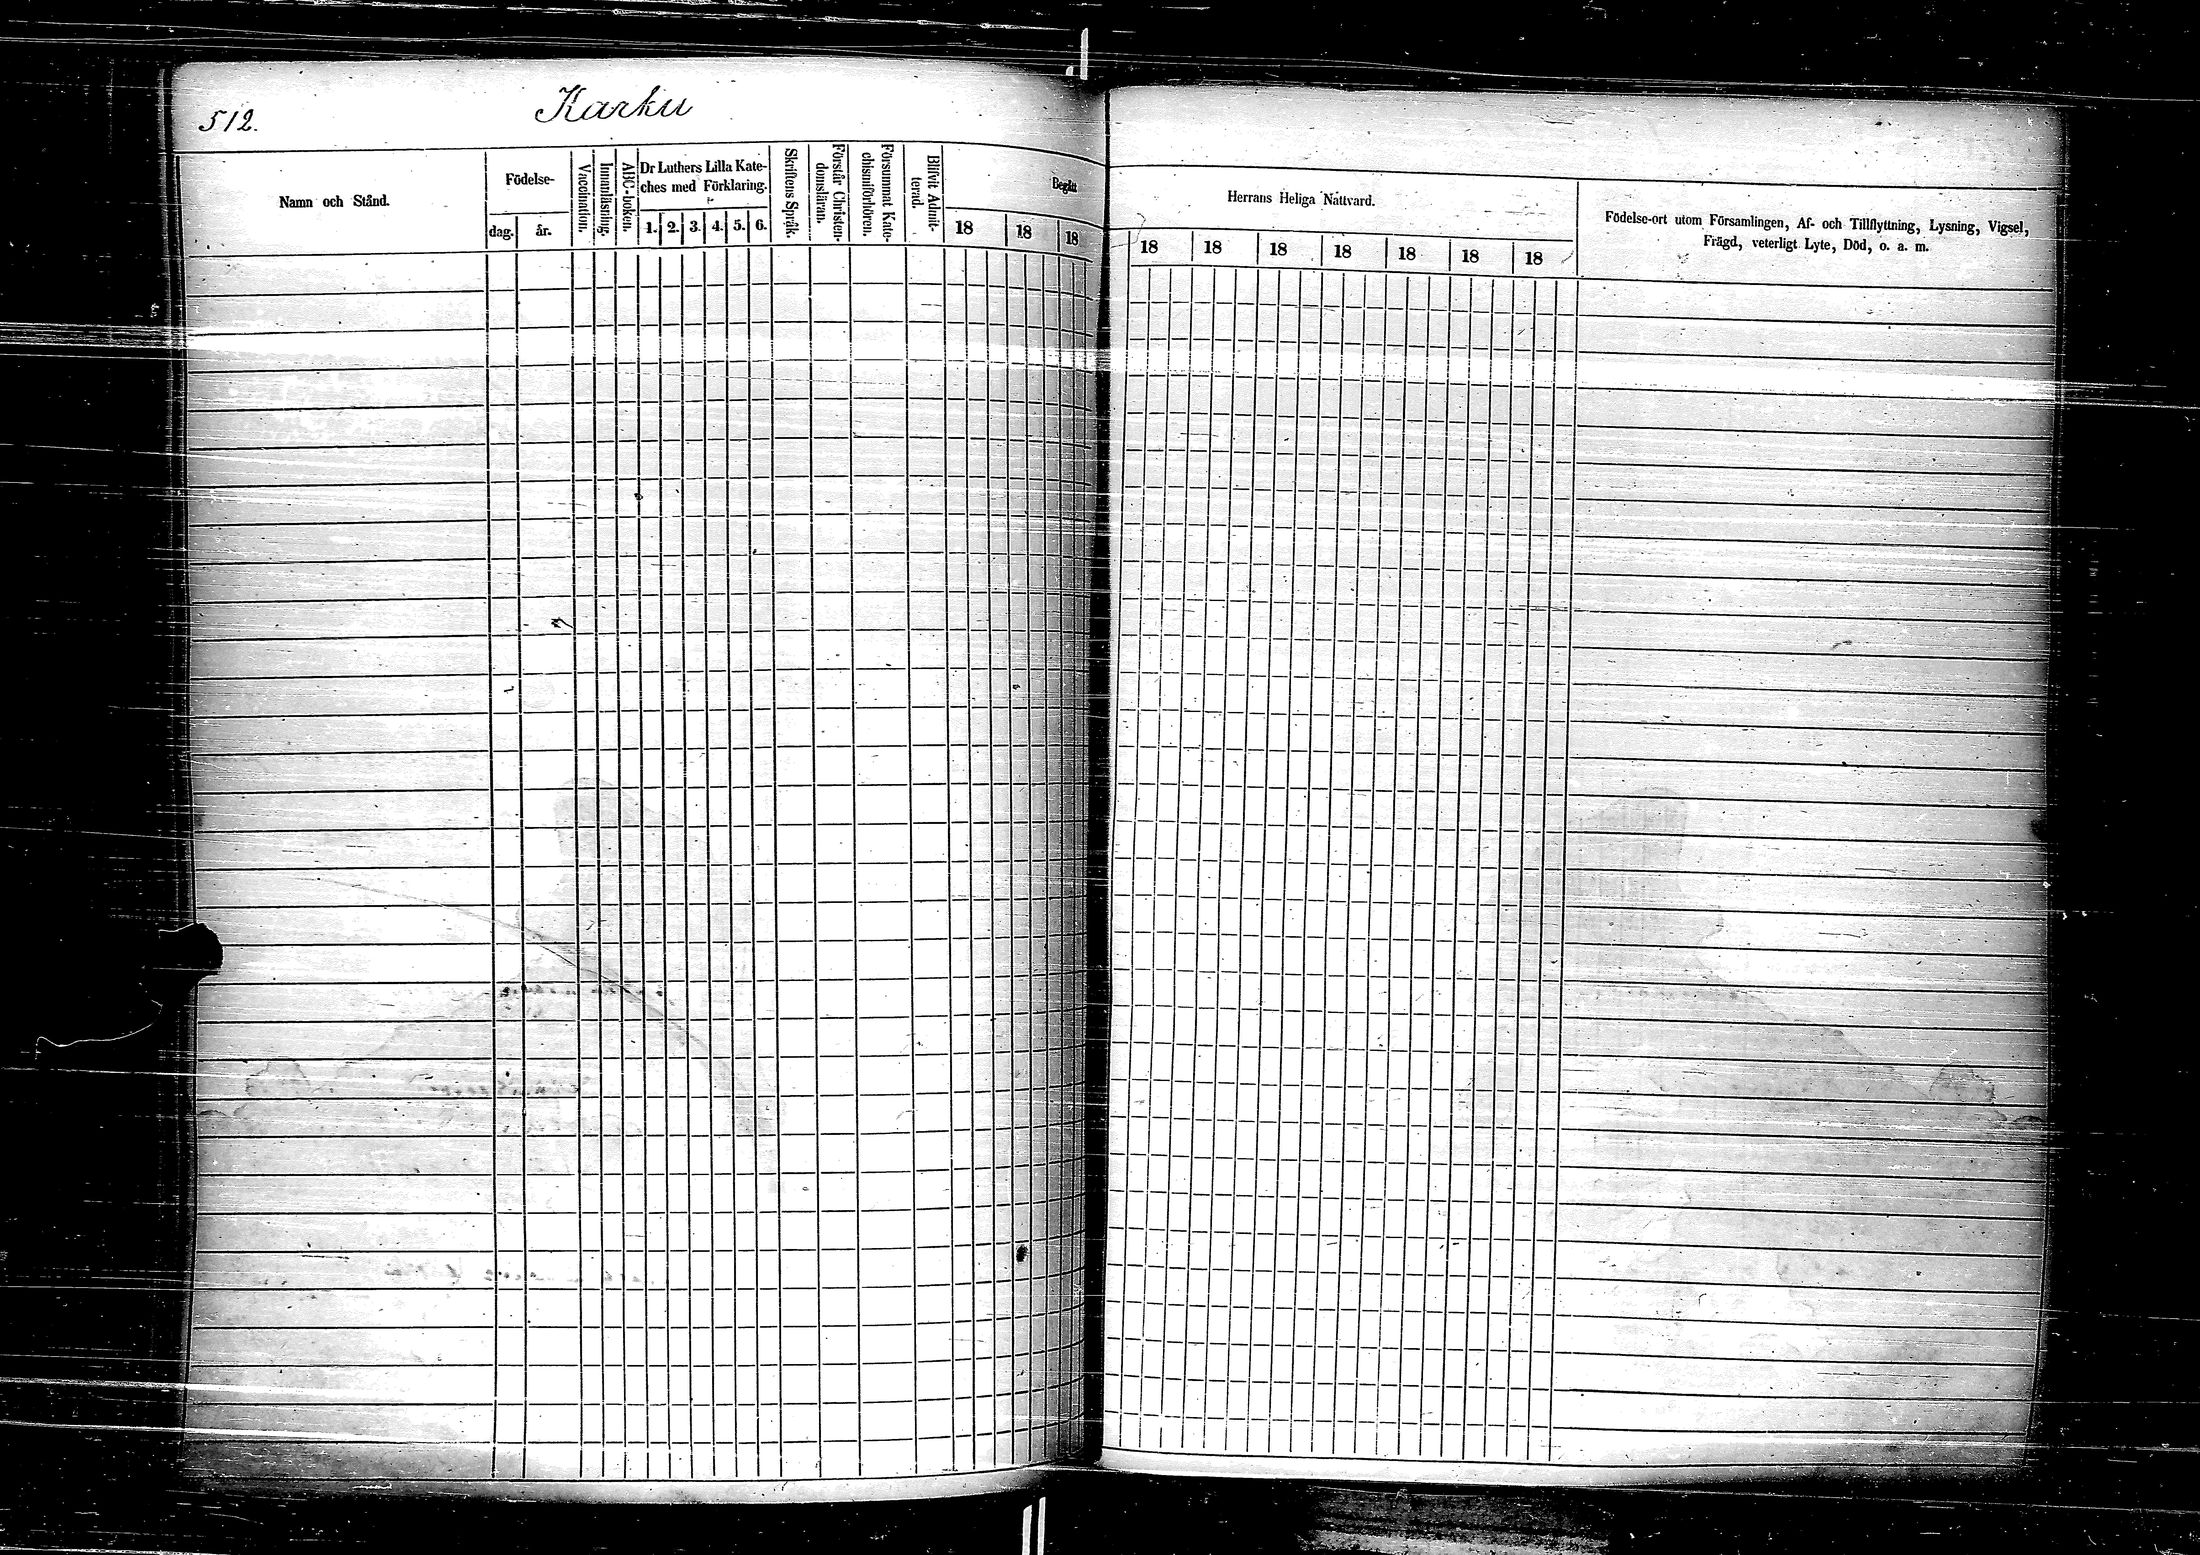 512.
Karku
Namn och Stånd.
Födelse-
dag.
år.
Vaccination.
Innanläsning.
ABC-boken.
Dr Luthers Lilla Kate-
ches med Förklaring.
1. 2. 3. 4. 5. 6.
Skriftens Språk.
Förstår Christen-
domsläran.
Försummat Kate-
chismiförhören.
Blifvit Admit-
terad.
Begått
18 18 18
Herrans Heliga Nattvard.
18 18 18 18 18 18 18
Födelse-ort utom Församlingen, Af- och Tillflyttning, Lysning, Vigsel,
Frägd, veterligt Lyte, Död, o. a. m.